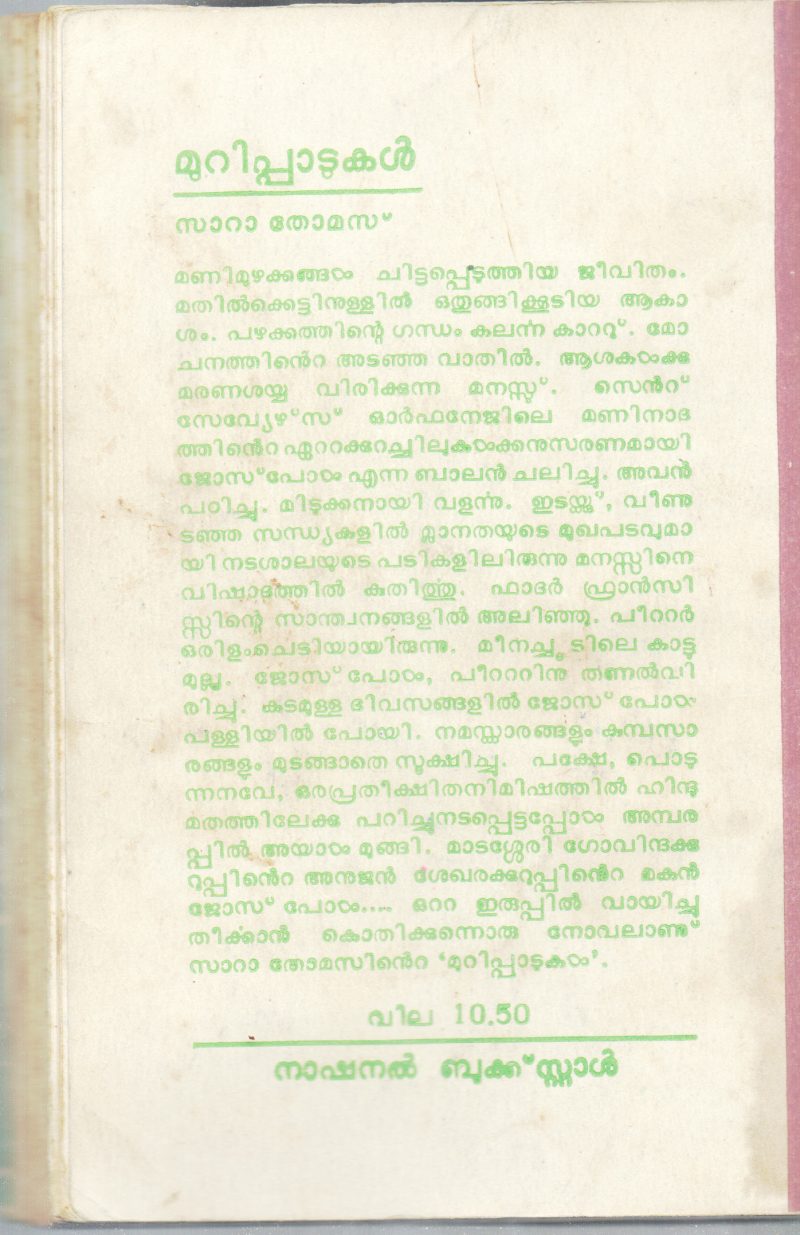 മുറിപ്പാടുകൾ
സാറാ തോമസ്
മണിമുഴക്കങ്ങൾ ചിട്ടപ്പെടുത്തിയ ജീവിതം.
മതിൽക്കെട്ടിനുള്ളിൽ ഒതുങ്ങിക്കൂടിയ ആകാ
ശം. പഴക്കത്തിന്റെ ഗന്ധം കലൎന്ന കാററു്. മോ
ചനത്തിൻെറ അടഞ്ഞ വാതിൽ. ആശകൾക്കു
മരണശയ്യ വിരിക്കുന്ന മനസ്സ്. സെൻറ്
സേവ്യേഴ്‌സ് ഓർഫനേജിലെ മണിനാദ
ത്തിൻെറ ഏററക്കുറച്ചിലുകൾക്കനുസരണമായി
ജോസ്പോൾ എന്ന ബാലൻ ചലിച്ചു. അവൻ
പഠിച്ചു. മിടുക്കനായി വളൎന്നു. ഇടയ്ക്കു്, വീണു
ടഞ്ഞ സന്ധ്യകളിൽ മ്ലാനതയുടെ മുഖപടവുമാ
യി നടശാലയുടെ പടികളിലിരുന്നു മനസ്സിനെ
വിഷാദത്തിൽ കുതിൎത്തു. ഫാദർ ഫ്രാൻസി
സ്സിന്റെ സാന്ത്വനങ്ങളിൽ അലിഞ്ഞു. പീററർ
ഒരിളംചെടിയായിരുന്നു. മീനച്ചൂടിലെ കാട്ടു
മുല്ല. ജോസ് പോൾ, പീറററിനു തണൽവി
രിച്ചു. കടമുള്ള ദിവസങ്ങളിൽ ജോസ് പോൾ
പള്ളിയിൽ പോയി. നമസ്കാരങ്ങളും കുമ്പസാ
രങ്ങളും മുടങ്ങാതെ സൂക്ഷിച്ചു. പക്ഷേ, പൊടു
ന്നനവേ, ഒരപ്രതീക്ഷിതനിമിഷത്തിൽ ഹിന്ദു
മതത്തിലേക്കു പറിച്ചുനടപ്പെട്ടപ്പോൾ അമ്പര
പ്പിൽ അയാൾ മുങ്ങി. മാടശ്ശേരി ഗോവിന്ദക്കു
റുപ്പിൻെറ അനുജൻ ശേഖരക്കുറുപ്പിൻെറ മകൻ
ജോസ് പോൾ.... ഒററ ഇരുപ്പിൽ വായിച്ചു
തീൎക്കാൻ കൊതിക്കുന്നൊരു നോവലാണു്
സാറാ തോമസിൻെറ ‘മുറിപ്പാടുകൾ’.
വില 10.50
നാഷനൽ ബുക്ക്സ്റ്റാൾ